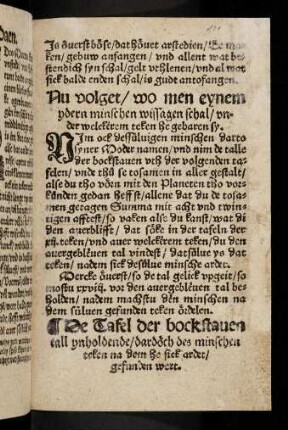 Is överst böse/dat hövet arstedien/Te ma
ken/gebuw anfangen/vnd allent wat be
stendich syn schal/gelt vthlenen/vnd al wat
sick balde enden schal/is gudt antofangen.
Nu volget/wo men eynem
ydern minschen wissagen schal/vn
der welckerem teken he gebaren sy.
Nim ock dessüluigen minschen darto
syner Moder namen/vnd nim de talle
der bockstauen vth der volgenden ta
felen/vnde tho se tosamen in aller gestalt/
alse du tho vören mit den Planeten tho vor
künden gedan heffst/allene dat du de tosa
men getagen Summa mit acht vnd twin
tigen affteest/so vaken alse du kanst/wat di
den auerblifft/dat söke in der tafeln der
xij. teken/vnd auer welckerem teken/du den
auergebleuen tal vindest/datsülue ys dat
teken/nadem sick desülue minsche ardet.
Mercke överst/so de tal gelick vpgeit/so
mostu xxviij. vor den auergebleuen tal be
holden/nadem machstu den minschen na
dem süluen gefunden teken ördelen.
¶ De Tafel der bockstauen
tall ynholdende/dardöch des minschen
teken na dem he sick ardet/
gefunden wert.